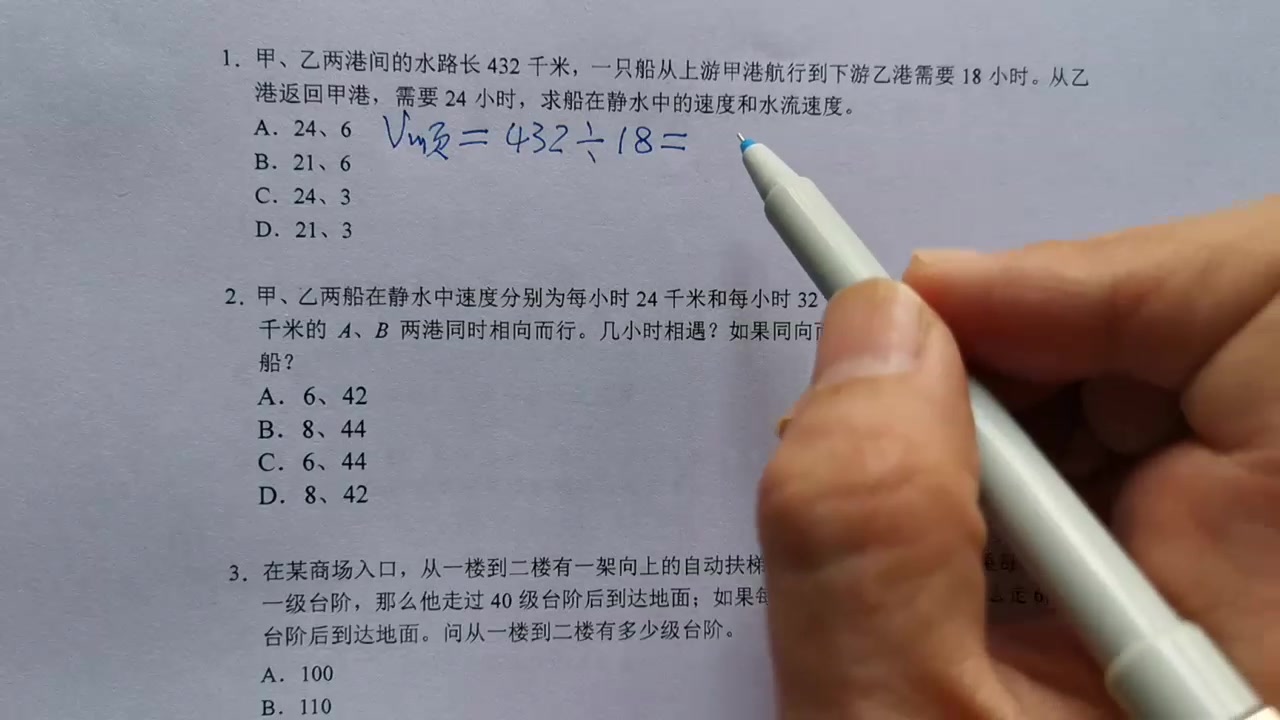 1. 甲、乙两港间的水路长 432 千米，一只船从上游甲港航行到下游乙港需要 18 小时。从乙
港返回甲港，需要 24 小时，求船在静水中的速度和水流速度。
A. 24、6
V顺 = 432 ÷ 18 =
B. 21、6
C. 24、3
D. 21、3
2. 甲、乙两船在静水中速度分别为每小时 24 千米和每小时 32
千米的 A、B 两港同时相向而行。几小时相遇？如果同向而
船？
A. 6、42
B. 8、44
C. 6、44
D. 8、42
3. 在某商场入口，从一楼到二楼有一架向上的自动扶梯
一级台阶，那么他走过 40 级台阶后到达地面；如果每
台阶后到达地面。问从一楼到二楼有多少级台阶。
A. 100
B. 110